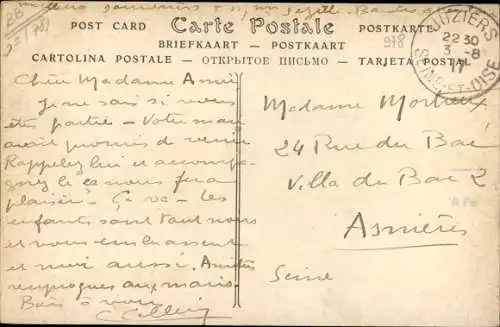 meilleurs souvenirs
POST CARD Carte Postale POSTKARTE
BRIEFKAART - POSTKAART
CARTOLINA POSTALE — ОТКРЫТОЕ ПИСЬМО — TARJETA POSTAL
978
JUZIERS
22 30
3 -8
SEINE-ET-OISE
Chère Madame Amie
Je ne sais si vous
êtes partie - Votre mari
avait promis de venir
Rappelez lui et accompa-
gnez le ça nous fera
plaisir - Ça va - Les
enfants sont tout noirs
et vous embrassent
et moi aussi. Amitiés
aux maris
à vous
Madame
24 Rue du Bac
Villa du Bac 2
Asnières
Seine